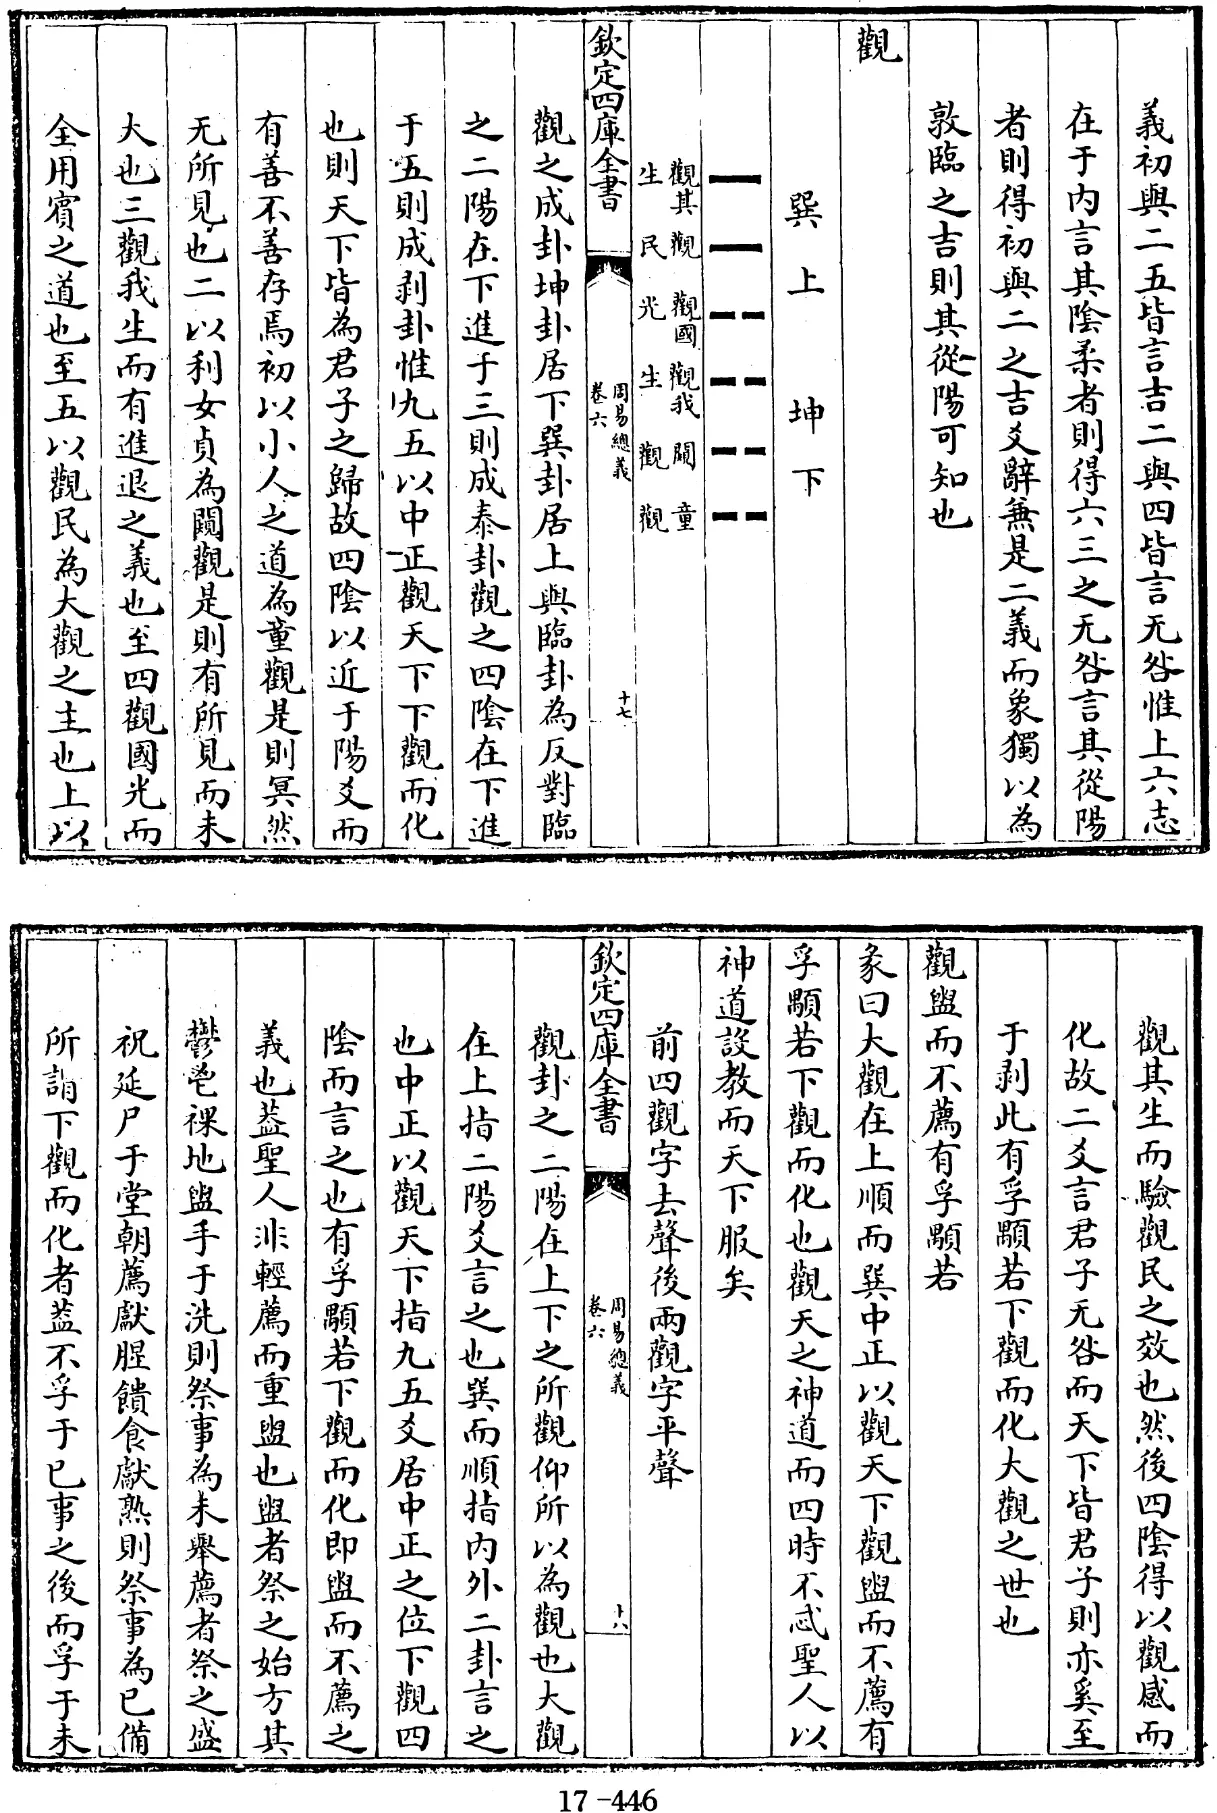 義初與二五皆言吉二與四皆言无咎惟上六志
在于内言其陰柔者則得六三之无咎言其從陽
者則得初與二之吉爻辭兼是二義而象獨以為
敦臨之吉則其從陽可知也
觀
巽上　坤下
觀其生
觀民
觀國光
觀我生
闚觀
童觀
欽定四庫全書
周易總義
卷六
十七
觀之成卦坤卦居下巽卦居上與臨卦為反對臨
之二陽在下進于三則成泰卦觀之四陰在下進
于五則成剥卦惟九五以中正觀天下下觀而化
也則天下皆為君子之歸故四陰以近于陽爻而
有善不善存焉初以小人之道為童觀是則冥然
无所見也二以利女貞為闚觀是則有所見而未
大也三觀我生而有進退之義也至四觀國光而
全用賔之道也至五以觀民為大觀之主也上以
觀其生而驗觀民之效也然後四陰得以觀感而
化故二爻言君子无咎而天下皆君子則亦奚至
于剥此有孚顒若下觀而化大觀之世也
觀盥而不薦有孚顒若
彖曰大觀在上順而巽中正以觀天下觀盥而不薦有
孚顒若下觀而化也觀天之神道而四時不忒聖人以
神道設教而天下服矣
前四觀字去聲後兩觀字平聲
欽定四庫全書
周易總義
卷六
十八
觀卦之二陽在上下之所觀仰所以為觀也大觀
在上指二陽爻言之也巽而順指内外二卦言之
也中正以觀天下指九五爻居中正之位下觀四
陰而言之也有孚顒若下觀而化即盥而不薦之
義也葢聖人非輕薦而重盥也盥者祭之始方其
鬱鬯祼地盥手于洗則祭事為未舉薦者祭之盛
祝延尸于堂朝薦獻腥饋食獻熟則祭事為已備
所謂下觀而化者葢不孚于已事之後而孚于未
17-446